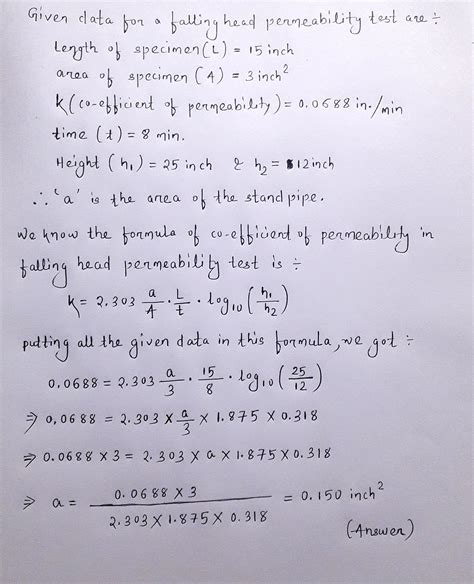 Given data for a falling head permeability test are ÷
Length of specimen (L) = 15 inch
area of specimen (A) = 3 inch²
K (co-efficient of permeability) = 0.0688 in./min
time (t) = 8 min.
Height (h₁) = 25 inch & h₂ = 12 inch
∴ 'a' is the area of the stand pipe.
We know the formula of co-efficient of permeability in
falling head permeability test is ÷
k = 2.303 a/A · L/t · log₁₀ (h₁/h₂)
putting all the given data in this formula, we got ÷
0.0688 = 2.303 a/3 · 15/8 · log₁₀ (25/12)
⇒ 0,0688 = 2.303 × a/3 × 1.875 × 0.318
⇒ 0.0688 × 3 = 2.303 × a × 1.875 × 0.318
⇒ a = 0.0688 × 3 / 2.303 × 1.875 × 0.318 = 0.150 inch²
(Answer)